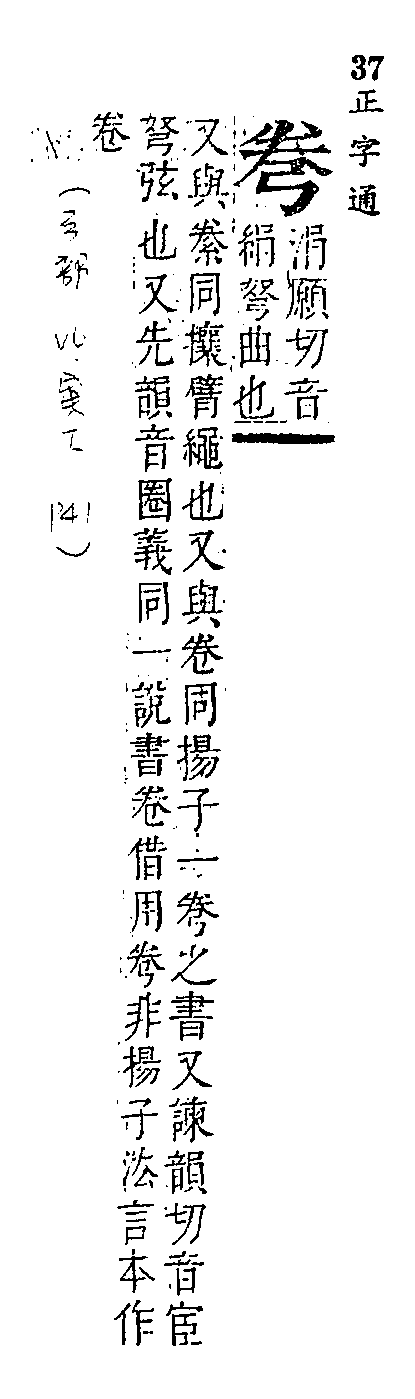 37
正字通
弮
涓願切音
絹弩曲也
又與絭同攘臂繩也又與卷同揚子一弮之書又諫韻切音宦
弩弦也又先韻音圈義同一說書卷借用弮非揚子㳒言本作
卷
(弓部 141)